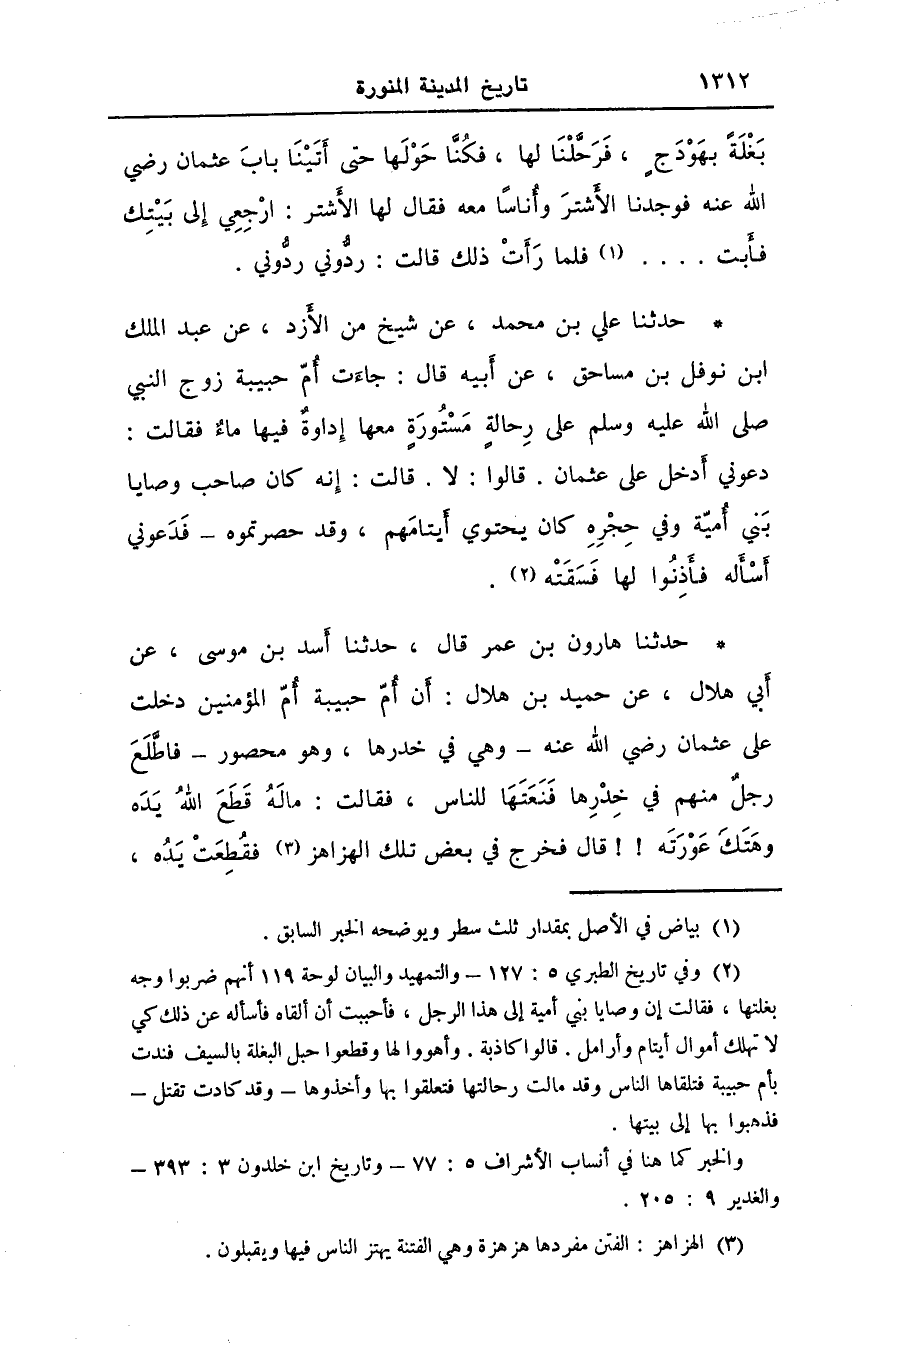 ١٣١٢ تاريخ المدينة المنورة
بَغْلَةً بهَوْدَجٍ ، فَرَحَّلْنَا لها ، فكُنَّا حَوْلَها حتى أَتَيْنَا بابَ عثمان رضي
الله عنه فوجدنا الأَشترَ وأُناساً معه فقال لها الأَشتر : ارْجِعِي إلى بَيْتِك
فأَبت . . . . (١) فلما رَأَتْ ذلك قالت : ردُّوني ردُّوني .
* حدثنا علي بن محمد ، عن شيخ من الأَزد ، عن عبد الملك
ابن نوفل بن مساحق ، عن أَبيه قال : جاءَت أُمّ حبيبة زوج النبي
صلى الله عليه وسلم على رِحالةٍ مَسْتُورَةٍ معها إداوةٌ فيها ماءٌ فقالت :
دعوني أَدخل على عثمان . قالوا : لا . قالت : إنه كان صاحب وصايا
بَني أُميّة وفي حِجْرِهِ كان يحتوي أَيتامَهم ، وقد حصرتموه – فَدَعوني
أَسْأَله فأَذِنُوا لها فَسَقَتْه (٢) .
* حدثنا هارون بن عمر قال ، حدثنا أَسد بن موسى ، عن
أَبي هلال ، عن حميد بن هلال : أَن أُمّ حبيبة أُمّ المؤمنين دخلت
على عثمان رضي الله عنه – وهي في خدرها ، وهو محصور – فاطَّلَعَ
رجلٌ منهم في خِدْرِها فَنَعَتَهَا للناس ، فقالت : مالَهُ قَطَعَ اللهُ يَدَه
وهَتَكَ عَوْرَتَه ! ! قال فخرج في بعض تلك الهزاهز (٣) فقُطِعَتْ يَدُه ،
(١) بياض في الأصل بمقدار ثلث سطر ويوضحه الخبر السابق .
(٢) وفي تاريخ الطبري ٥ : ١٢٧ – والتمهيد والبيان لوحة ١١٩ أنهم ضربوا وجه
بغلتها ، فقالت إن وصايا بني أمية إلى هذا الرجل ، فأحببت أن ألقاه فأسأله عن ذلك كي
لا تهلك أموال أيتام وأرامل . قالوا كاذبة . وأهووا لها وقطعوا حبل البغلة بالسيف فندت
بأم حبيبة فتلقاها الناس وقد مالت رحالتها فتعلقوا بها وأخذوها – وقد كادت تقتل –
فذهبوا بها إلى بيتها .
والخبر كما هنا في أنساب الأشراف ٥ : ٧٧ – وتاريخ ابن خلدون ٣ : ٣٩٣ –
والغدير ٩ : ٢٠٥ .
(٣) الهزاهز : الفتن مفردها هزهزة وهي الفتنة يهتز الناس فيها ويقبلون .